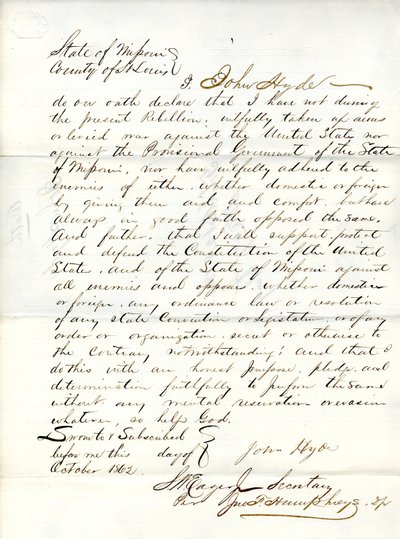 State of Missouri
County of St Louis
I. John Hyde
do on oath declare that I have not during
the present Rebellion, wilfully taken up arms
or levied war against the United State nor
against the Provisional Government of the State
of Missouri, nor have wilfully adhered to the
enemies of either, whether domestic or foreign
by giving them aid and comfort, but have
always in good faith opposed the same.
And further, that I will support, protect
and defend the Constitution of the United
State, and of the State of Missouri against
all enemies and opposers, whether domestic
or foreign, any ordinance law or resolution
of any state Convention or Legislature, or of any
order or organization, secret or otherwise to
the contrary notwithstanding; and that I
do this with an honest purpose, pledge and
determination faithfully to perform the same
without any mental reservation or evasion
whatever, so help God.
Sworn to & Subscribed
before me this day of
October 1862.
John Hyde
Secretary
Per Jno. F. Humphreys.